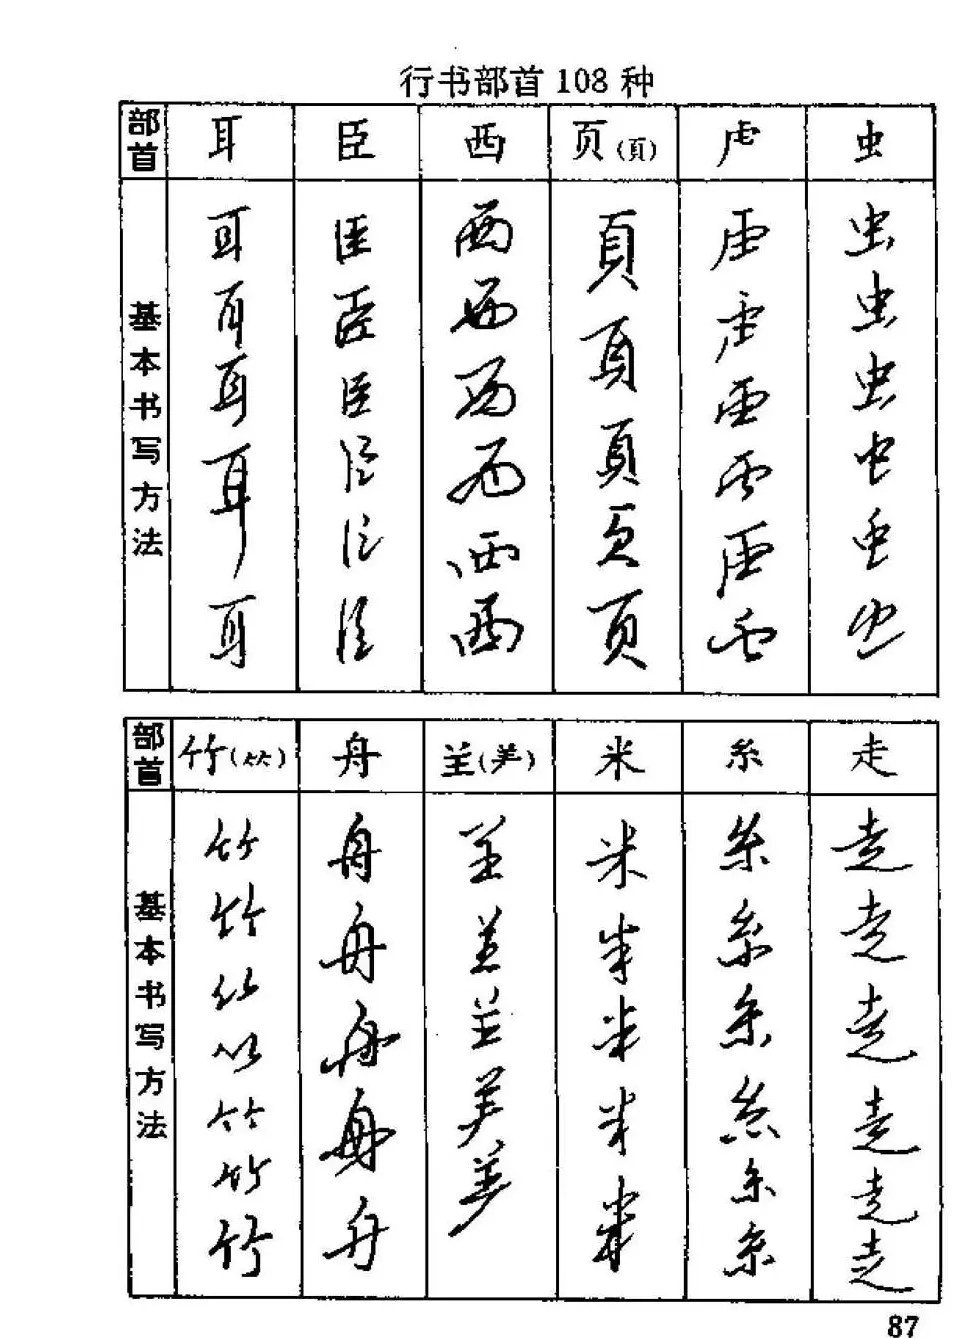 行书部首108种
部首 耳 臣 西 页(頁) 虍 虫
基本书写方法
耳 臣 西 頁 虍 虫
耳 臣 西 頁 虍 虫
耳 臣 西 頁 虍 虫
耳 臣 西 页 虍 虫
耳 臣 西 页 虍 虫
臣 西 虍 虫
部首 竹(⺮) 舟 𦍌(⺷) 米 糸 走
基本书写方法
竹 舟 𦍌 米 糸 走
竹 舟 𦍌 米 糸 走
竹 舟 𦍌 米 糸 走
竹 舟 ⺷ 米 糸 走
竹 舟 ⺷ 米 糸 走
竹 糸 走
竹
87